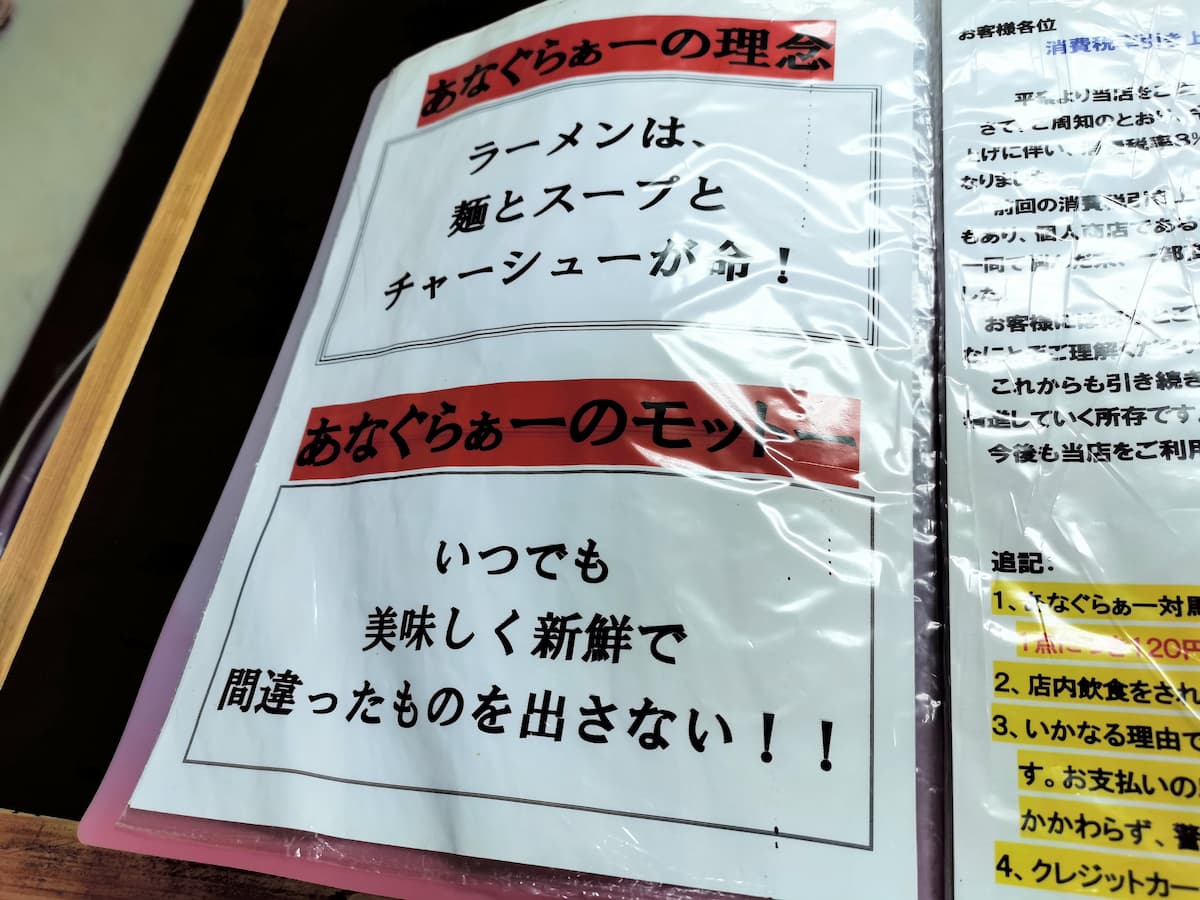 あなぐらぁーの理念
ラーメンは、
麺とスープと
チャーシューが命！
あなぐらぁーのモットー
いつでも
美味しく新鮮で
間違ったものを出さない！！
お客様各位
消費税 引き上
平 より当店をご
さて、ご周知のとおり、
上げに伴い、 税率8%
なりました
前回の消費税引き上
もあり、個人商店である
一同で 一部
した
お客様に
なにとぞご理解く
これからも引き続き
進していく所存です
今後も当店をご利用
追記：
1、あなぐらぁー対
1点につき120円
2、店内飲食をされ
3、いかなる理由で
す。お支払いの
かかわらず、警
4、クレジットカー